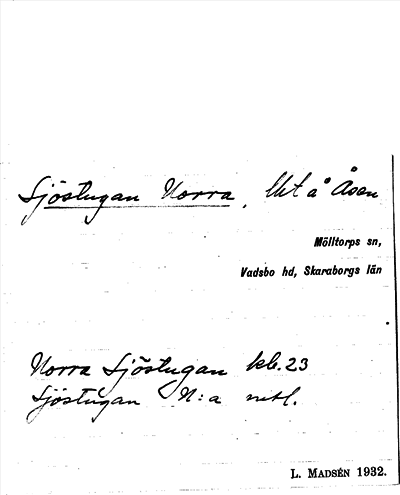 Sjöstugan Norra, lht å Åsen
Mölltorps sn,
Vadsbo hd, Skaraborgs län
Norra Sjöstugan kb. 23
Sjöstugan N:a mtl.
L. MADSÉN 1932.